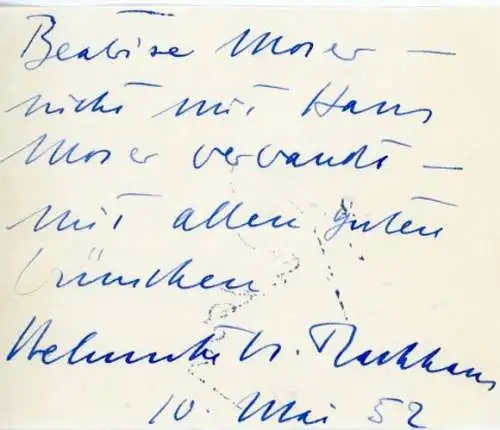 Beatrise Moser –
nicht mit Hans
Moser verwandt –
mit allen guten
Wünschen
Helmuth M. Backhaus
10. Mai 52